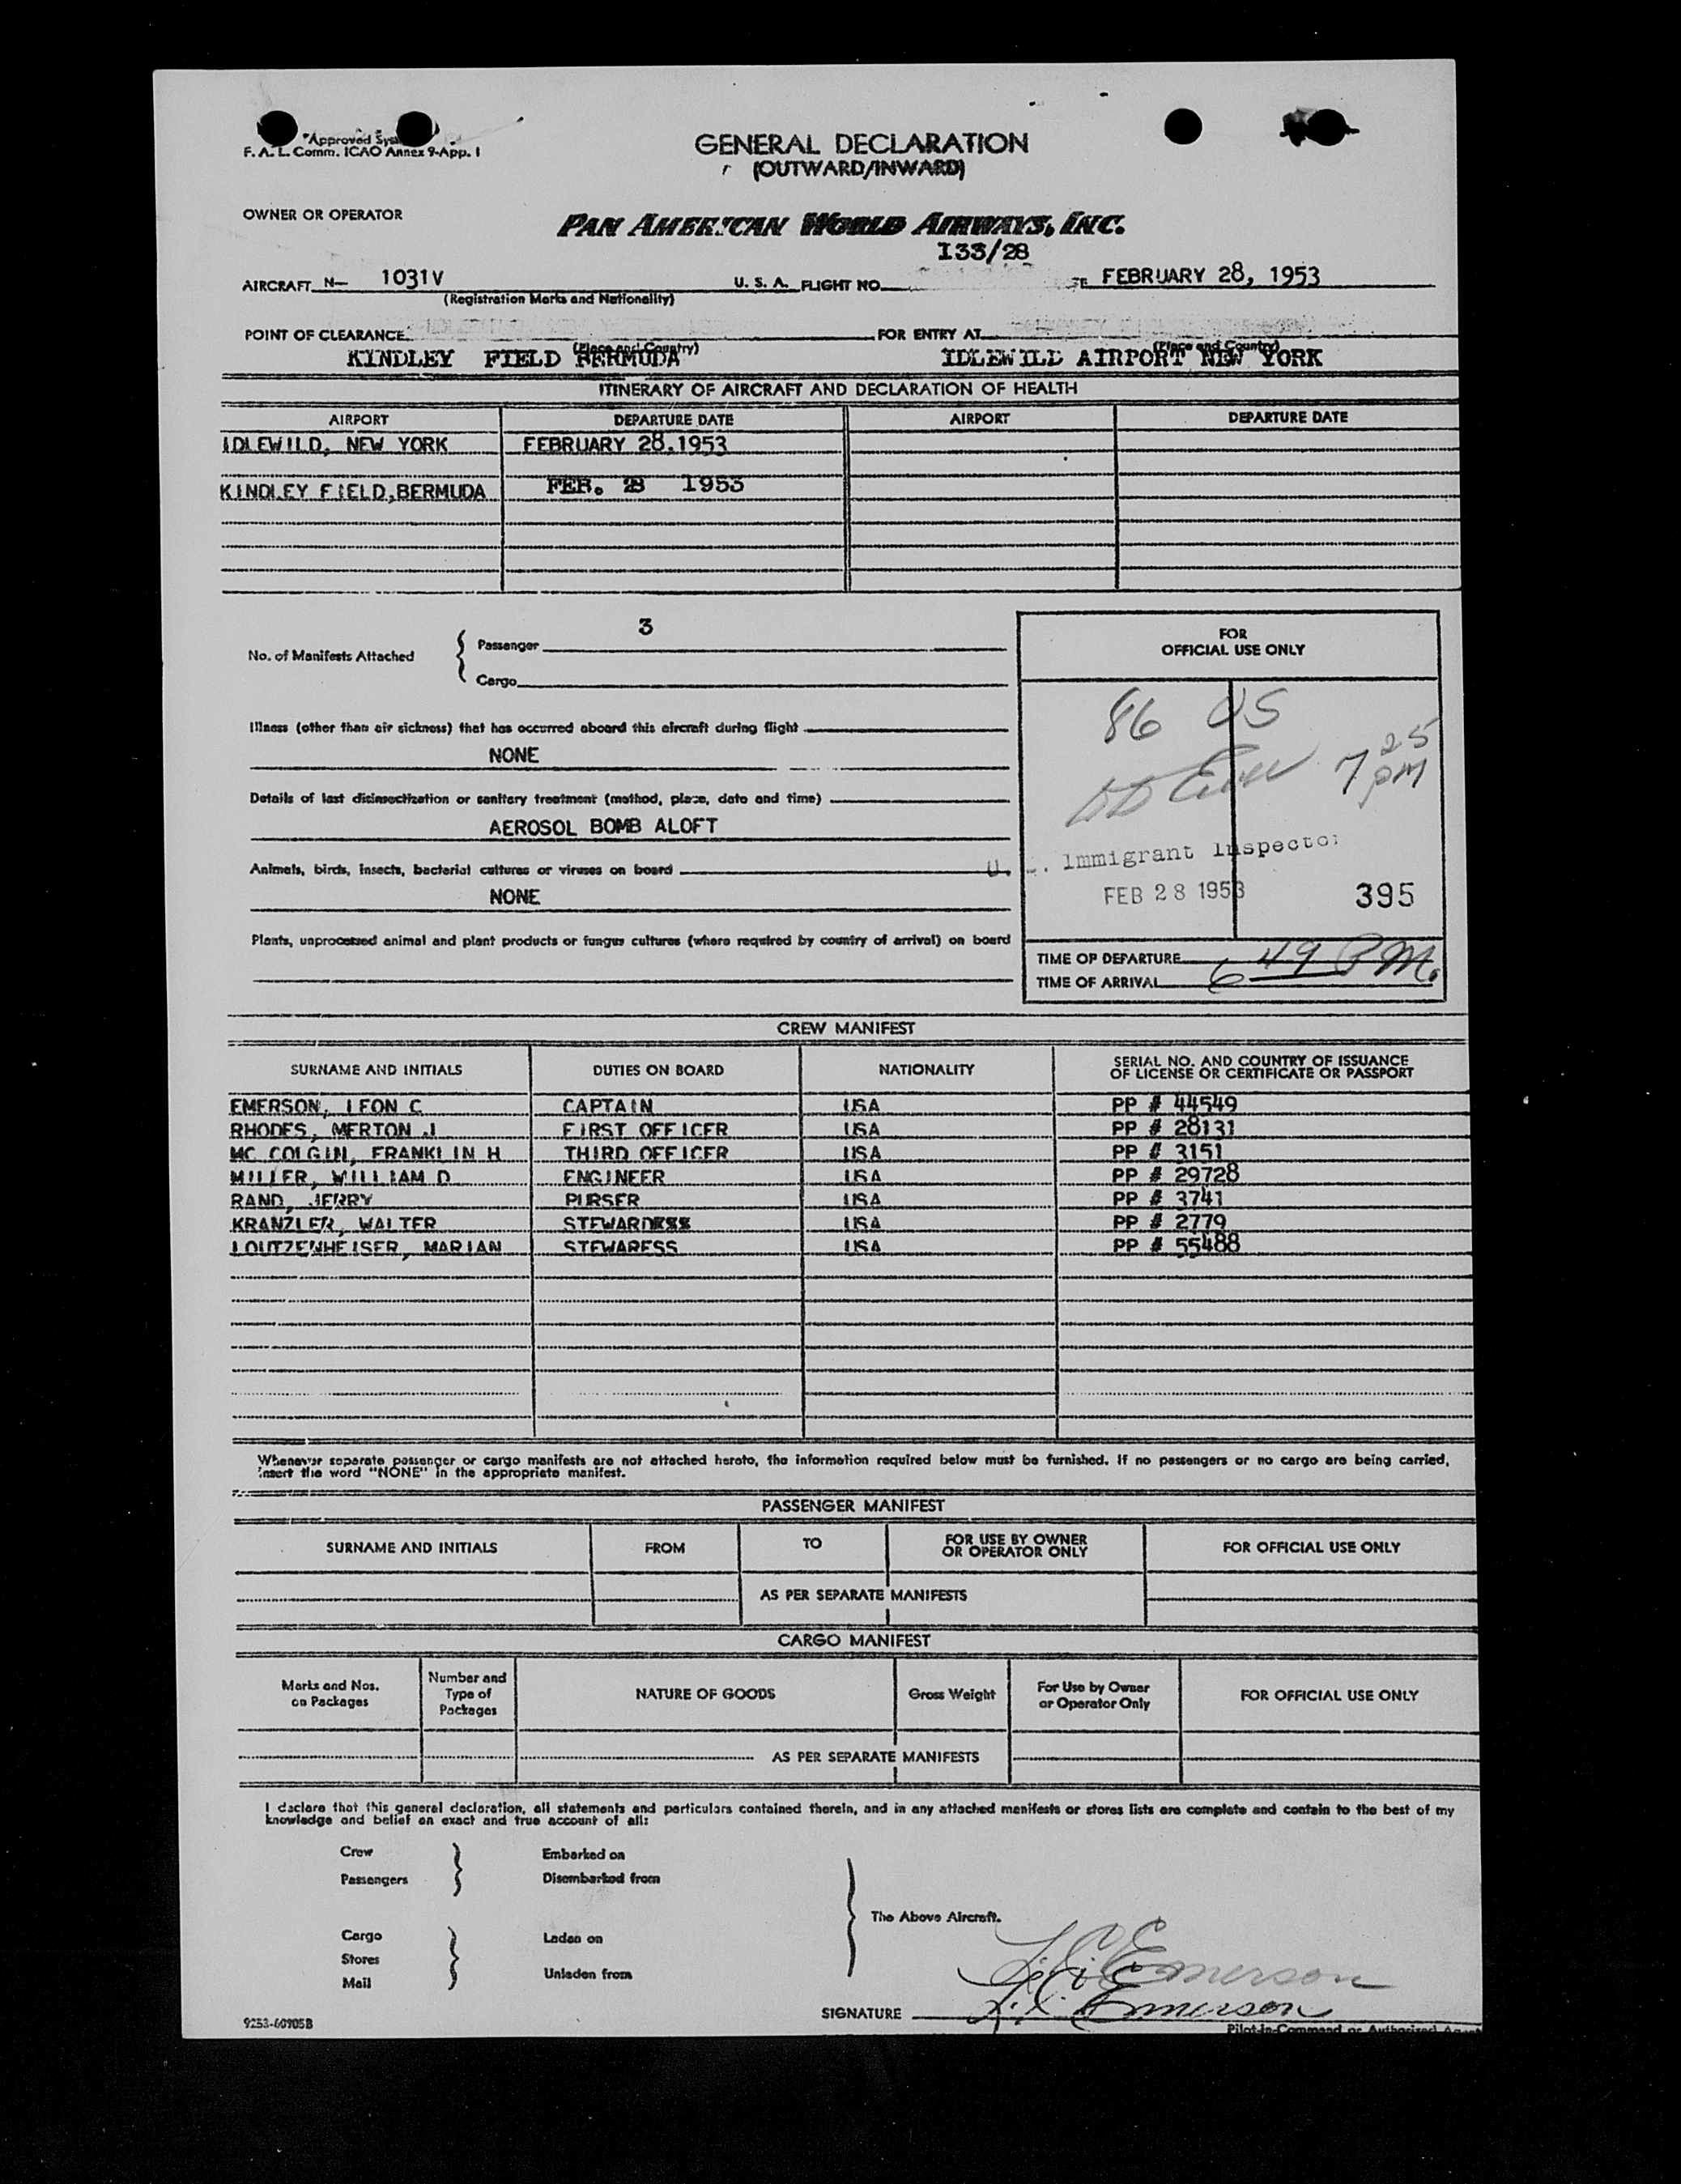 "Approved Sys
F. A. L. Comm. ICAO Annex 9-App. I
GENERAL DECLARATION
(OUTWARD/INWARD)
OWNER OR OPERATOR
PAN AMERICAN WORLD AIRWAYS, INC.
133/28
AIRCRAFT N- 1031V U. S. A. FLIGHT NO. TE FEBRUARY 28, 1953
(Registration Marks and Nationality)
POINT OF CLEARANCE FOR ENTRY AT
(Place and Country) (Place and Country)
KINDLEY FIELD BERMUDA IDLEWILD AIRPORT NEW YORK
ITINERARY OF AIRCRAFT AND DECLARATION OF HEALTH
AIRPORT DEPARTURE DATE AIRPORT DEPARTURE DATE
IDLEWILD, NEW YORK FEBRUARY 28.1953
KINDLEY FIELD,BERMUDA FEB. 28 1953
No. of Manifests Attached { Passenger 3
Cargo
Illness (other than air sickness) that has occurred aboard this aircraft during flight
NONE
Details of last disinsectization or sanitary treatment (method, place, date and time)
AEROSOL BOMB ALOFT
Animals, birds, insects, bacterial cultures or viruses on board
NONE
Plants, unprocessed animal and plant products or fungus cultures (where required by country of arrival) on board
FOR
OFFICIAL USE ONLY
86 US
7 25 pm
U. . Immigrant Inspector
FEB 28 1953 395
TIME OF DEPARTURE
TIME OF ARRIVAL 6 49 P.M.
CREW MANIFEST
SURNAME AND INITIALS DUTIES ON BOARD NATIONALITY SERIAL NO. AND COUNTRY OF ISSUANCE
OF LICENSE OR CERTIFICATE OR PASSPORT
EMERSON, LEON C CAPTAIN USA PP # 44549
RHODES, MERTON J FIRST OFFICER USA PP # 28131
MC COLGIN, FRANKLIN H THIRD OFFICER USA PP # 3151
MILLER, WILLIAM D ENGINEER USA PP # 29728
RAND, JERRY PURSER USA PP # 3741
KRANZLER, WALTER STEWARDXXX USA PP # 2779
LOUTZENHEISER, MARIAN STEWARESS USA PP # 55488
Whenever separate passenger or cargo manifests are not attached hereto, the information required below must be furnished. If no passengers or no cargo are being carried,
insert the word "NONE" in the appropriate manifest.
PASSENGER MANIFEST
SURNAME AND INITIALS FROM TO FOR USE BY OWNER
OR OPERATOR ONLY FOR OFFICIAL USE ONLY
AS PER SEPARATE MANIFESTS
CARGO MANIFEST
Marks and Nos.
on Packages Number and
Type of
Packages NATURE OF GOODS Gross Weight For Use by Owner
or Operator Only FOR OFFICIAL USE ONLY
AS PER SEPARATE MANIFESTS
I declare that this general declaration, all statements and particulars contained therein, and in any attached manifests or stores lists are complete and contain to the best of my
knowledge and belief an exact and true account of all:
Crew Embarked on
Passengers Disembarked from
The Above Aircraft.
Cargo Laden on
Stores
Mail Unladen from
L. C. Emerson
SIGNATURE L. C. Emerson
Pilot-in-Command or Authorized Agent
9253-60905B